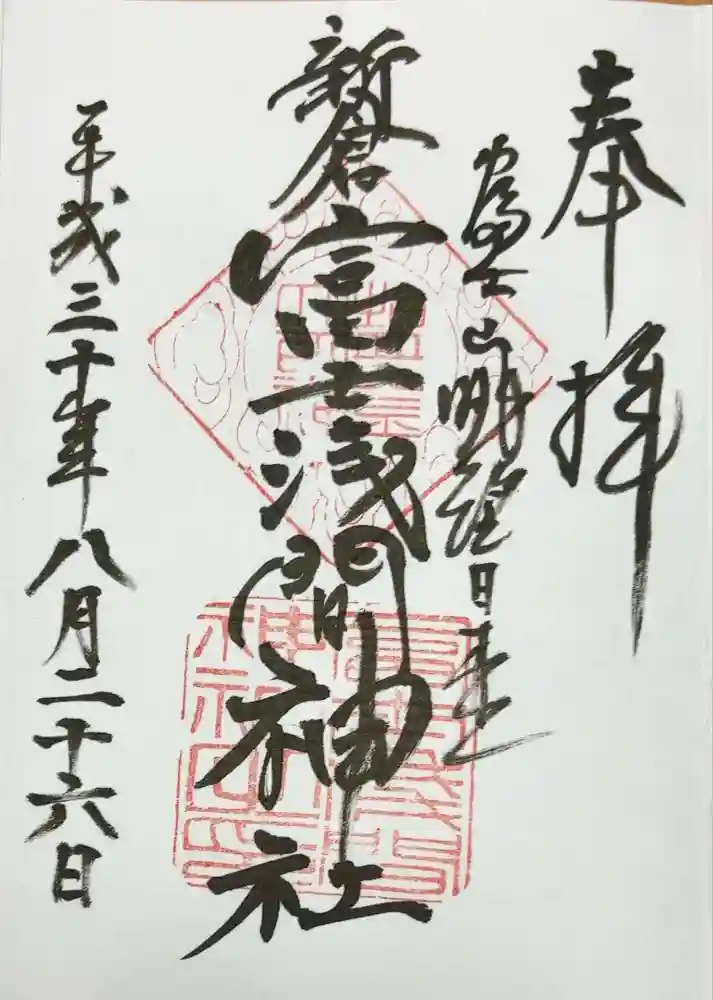 奉拝
富士山眺望日本一
新倉富士浅間神社
平成三十年八月二十六日